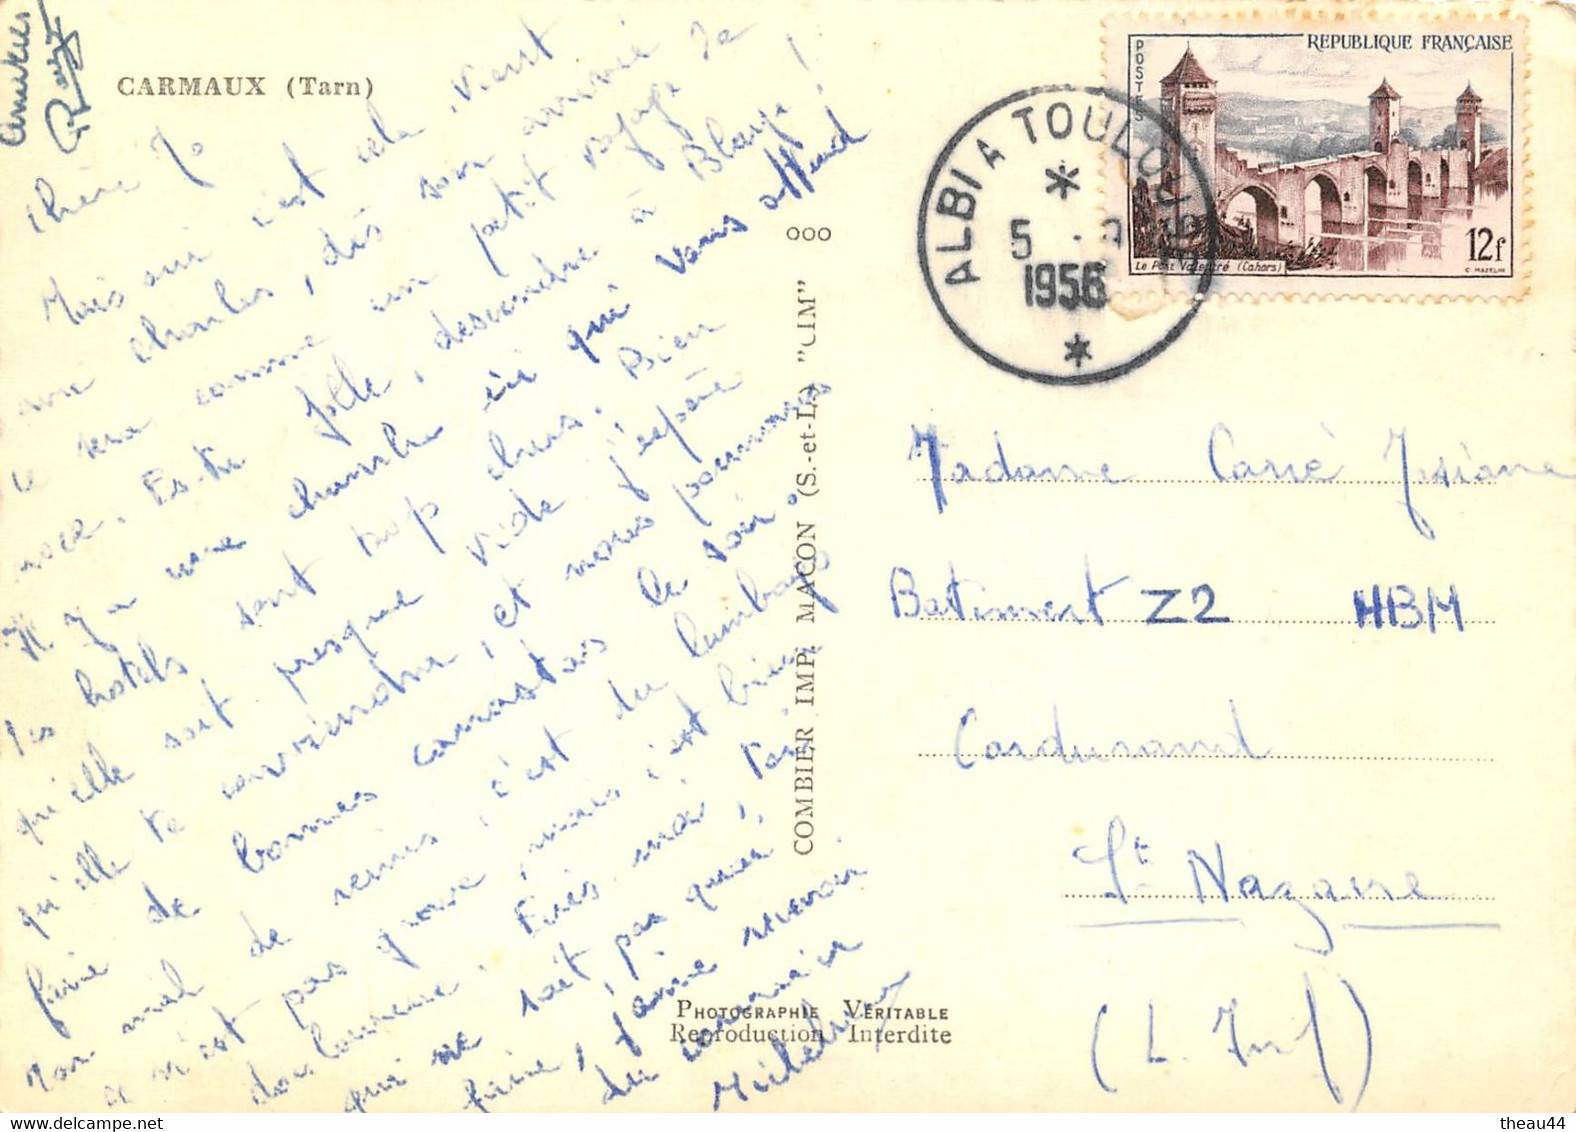 CARMAUX (Tarn)
Amitiés
Chère Jo
Mais oui c'est cela. Vient
avec Charles, dès son arrivée
ce sera comme un petit voyage de
noce. Es-tu folle, descendre à Blaye!
Il y a une chambre ici qui vous attend
les hotels sont trop chers. Bien
qu'elle soit presque vide j'espère
qu'elle te conviendra, et nous pourrons
faire de bonnes canastas le soir.
Mon mal de reins, c'est du lumbago
ce n'est pas grave, mais c'est bien
douloureux. Ecris-moi, toi
qui ne sait pas quoi
faire, j'aime recevoir
du courrier
000
COMBIER IMP. MACON (S.-et-L.) "CIM"
PHOTOGRAPHIE VÉRITABLE
Reproduction Interdite
REPUBLIQUE FRANÇAISE
POSTES
Le Pont Valentré (Cahors)
12f
C. MAZELIN
ALBI A TOULOUSE
5
1956
Madame Carré Josiane
Batiment Z2 HBM
Cardurand
St Nazaire
(L. Inf)
theau44